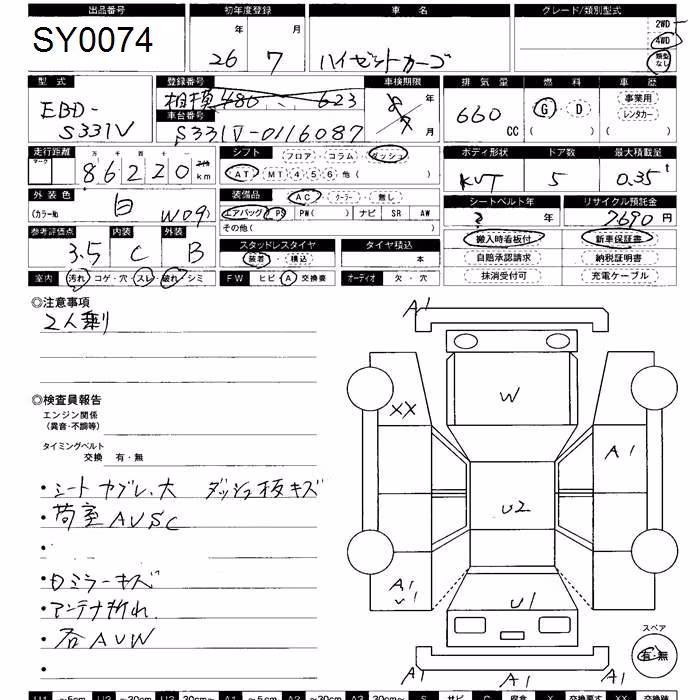 出品番号 初年度登録 車名 グレード/類別型式
SY0074 26年 7月 ハイゼットカーゴ 2WD
4WD
類型なし
型式 登録番号 車検期限 排気量 燃料 車歴
EBD-S331V 相模 480 623 年 月 660 CC G・D 事業用
レンタカー
車台番号
S331V-0116087
走行距離 シフト フロア・コラム・ダッシュ ボディ形状 ドア数 最大積載量
86220 km AT MT 4 5 6 他( ) 5 0.35t
外装色 装備品 AC・クーラー・無し シートベルト年 リサイクル預託金
(カラーNo. 白 W09) エアバッグ PS PW( ) ナビ SR AW 年 7690円
その他( )
参考評価点 内装 外装 スタッドレスタイヤ タイヤ積込 搬入時看板付 新車保証書
3.5 C B 装着・積込 本 自賠承認請求 納税証明書
室内 汚れ コゲ・穴 スレ・破れ シミ FW ヒビ A 交換要 オーディオ 欠・穴 抹消受付可 充電ケーブル
◎注意事項
2人乗り
◎検査員報告
エンジン関係
(異音・不調等)
タイミングベルト
交換 有・無
・シートヤブレ大 ダッシュ板キズ
・荷室AUSC
・
・Dミラーキズ
・アンテナ折れ
・各AUW
・
A1
W
XX
A1
U2
A1
U1
U1
スペア
有・無
A1 A1 A1
U1 ~5cm U2 ~30cm U3 30cm~ A1 ~5cm A2 ~30cm A3 30cm~ S サビ C 腐食 X 交換要す XX 交換跡